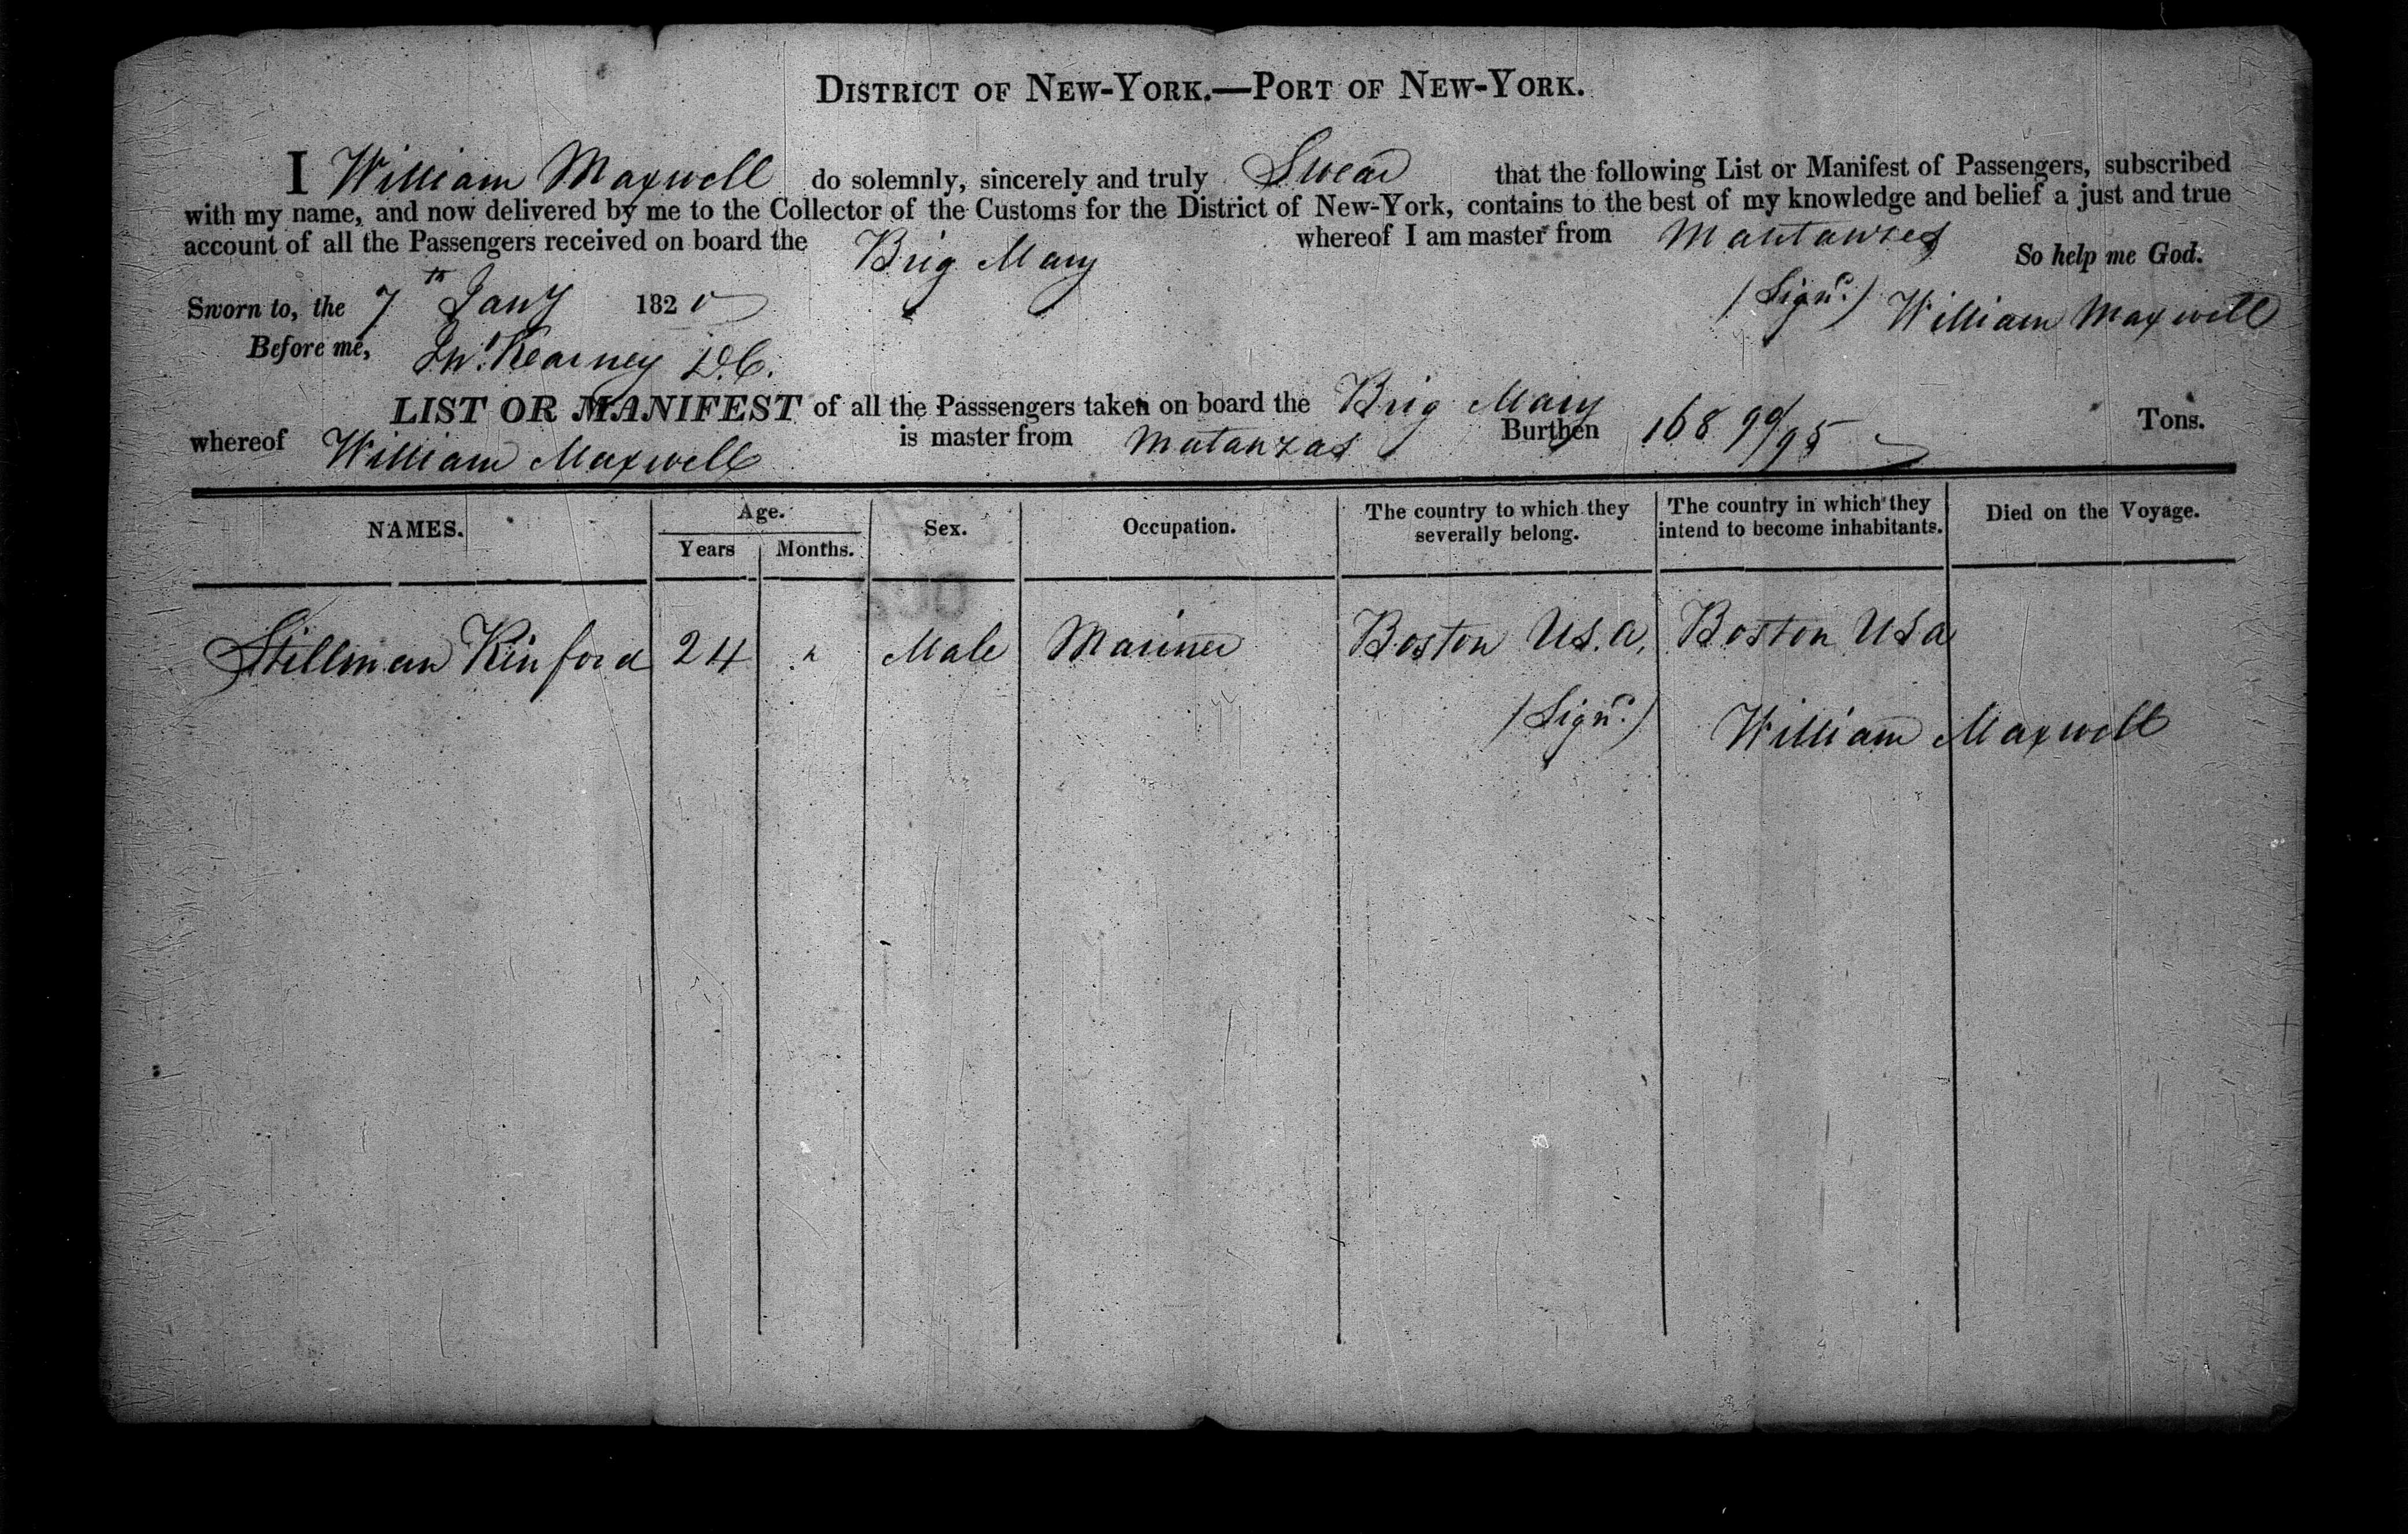 DISTRICT OF NEW-YORK.—PORT OF NEW-YORK.
I William Maxwell do solemnly, sincerely and truly Swear that the following List or Manifest of Passengers, subscribed
with my name, and now delivered by me to the Collector of the Customs for the District of New-York, contains to the best of my knowledge and belief a just and true
account of all the Passengers received on board the Brig Mary whereof I am master from Mantanzes
So help me God.
Sworn to, the 7th Jany 1820 (Signd.) William Maxwell
Before me, Jn. Kearney D.C.
LIST OR MANIFEST of all the Passsengers taken on board the Brig Mary
whereof William Maxwell is master from Matanzas Burthen 168 90/95 Tons.
NAMES. Age. Years Months. Sex. Occupation. The country to which they severally belong. The country in which they intend to become inhabitants. Died on the Voyage.
Stillman Kinford 24 " Male Mariner Boston U.S.a. Boston USa
(Signd.) William Maxwell